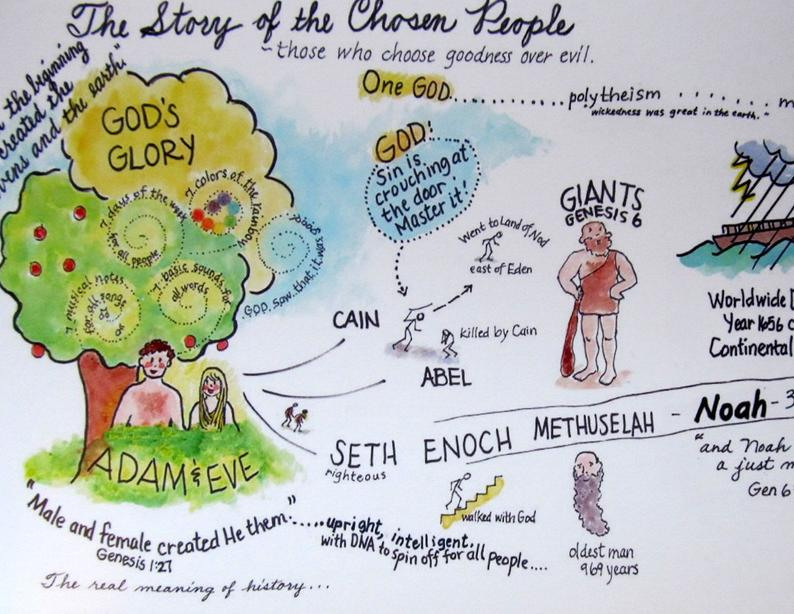 The Story of the Chosen People
~those who choose goodness over evil.
the beginning
created the
and the earth."
GOD'S
GLORY
7 days of the week
for all people
7 colors of the rainbow
7 musical notes
for all songs
7 basic sounds for
all words
GOD saw...that it was good
One GOD.............polytheism........
"wickedness was great in the earth."
GOD:
Sin is
crouching at
the door.
Master it!
Went to Land of Nod
east of Eden
CAIN
killed by Cain
ABEL
GIANTS
GENESIS 6
Worldwide
Year 1656
Continental
SETH ENOCH METHUSELAH - Noah - 3
righteous
walked with God
oldest man
969 years
"and Noah
a just
Gen 6
ADAM & EVE
"Male and female created He them.".....upright, intelligent,
Genesis 1:27
with DNA to spin off for all people....
The real meaning of history...